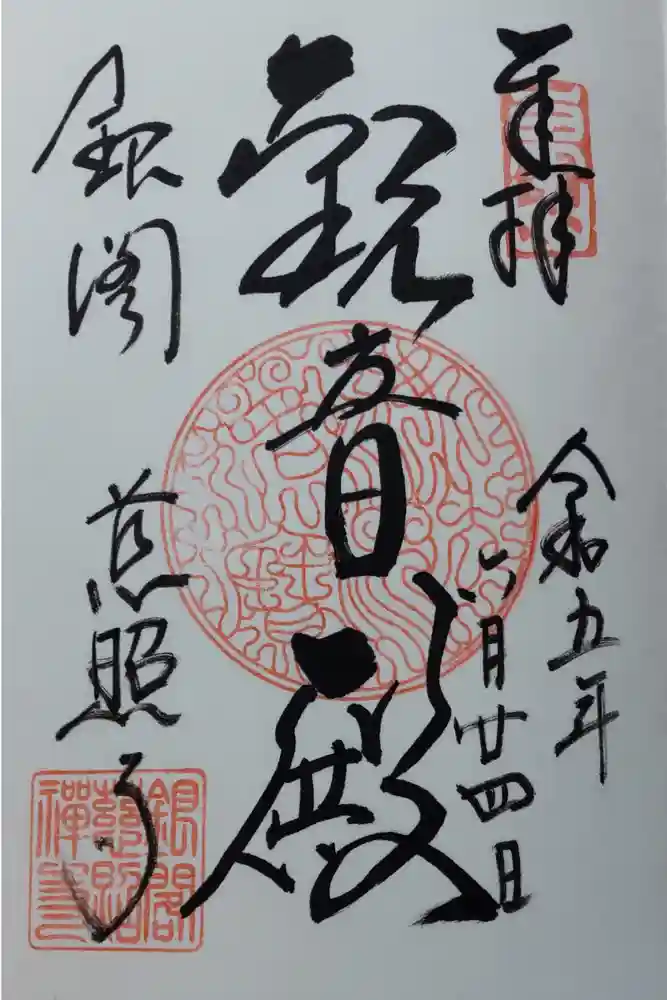 奉拝
令和五年
六月廿四日
観音殿
銀閣
慈照寺
銀閣
慈照
禅寺